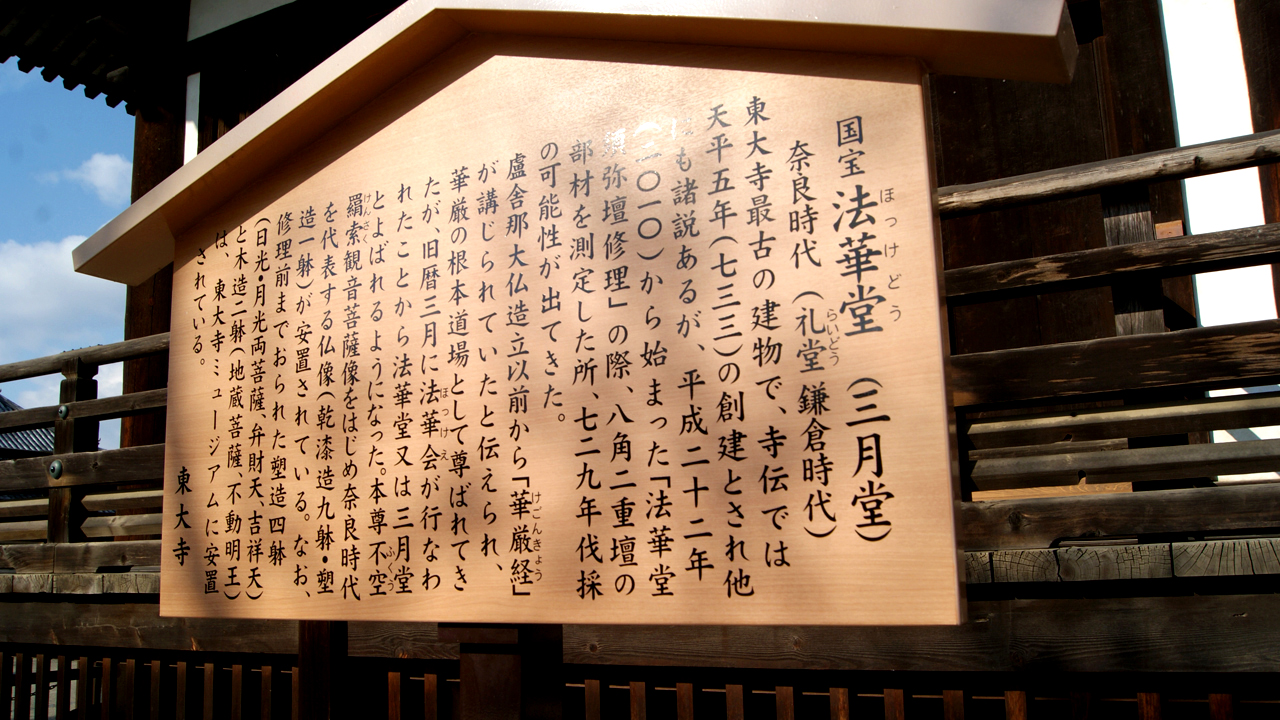 国宝 法華堂 (三月堂)
ほっけどう
奈良時代 (礼堂 鎌倉時代)
らいどう
東大寺最古の建物で、寺伝では
天平五年(七三三)の創建とされ他
にも諸説あるが、平成二十二年
(二〇一〇)から始まった「法華堂
須弥壇修理」の際、八角二重壇の
部材を測定した所、七二九年伐採
の可能性が出てきた。
盧舎那大仏造立以前から「華厳経」
けごんきょう
が講じられていたと伝えられ、
華厳の根本道場として尊ばれてき
たが、旧暦三月に法華会が行なわ
ほっけえ
れたことから法華堂又は三月堂
とよばれるようになった。本尊不空
ふくう
羂索観音菩薩像をはじめ奈良時代
けんさく
を代表する仏像(乾漆造九躰・塑
造一躰)が安置されている。なお、
修理前までおられた塑造四躰
(日光・月光両菩薩、弁財天、吉祥天)
と木造二躰(地蔵菩薩、不動明王)
は、東大寺ミュージアムに安置
されている。
東大寺